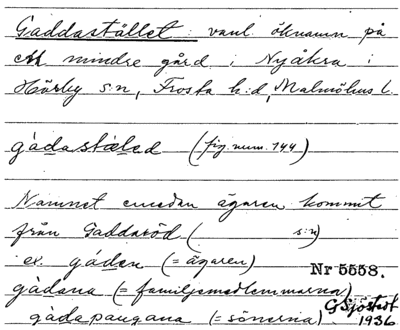 Gaddastället: vanl. öknamn på
ett mindre gård i Nyåkra i
Hörby sn, Frosta hd, Malmöhus l.
gådastæled (fig. num. 144)
Namnet emedan ägaren kommit
från Gaddaröd ( sn)
ex. gåden (= ägaren) Nr 5558.
gådana (= familjemedlemmarna)
gådepaugana (= sönerna) G Sjöstedt
1936